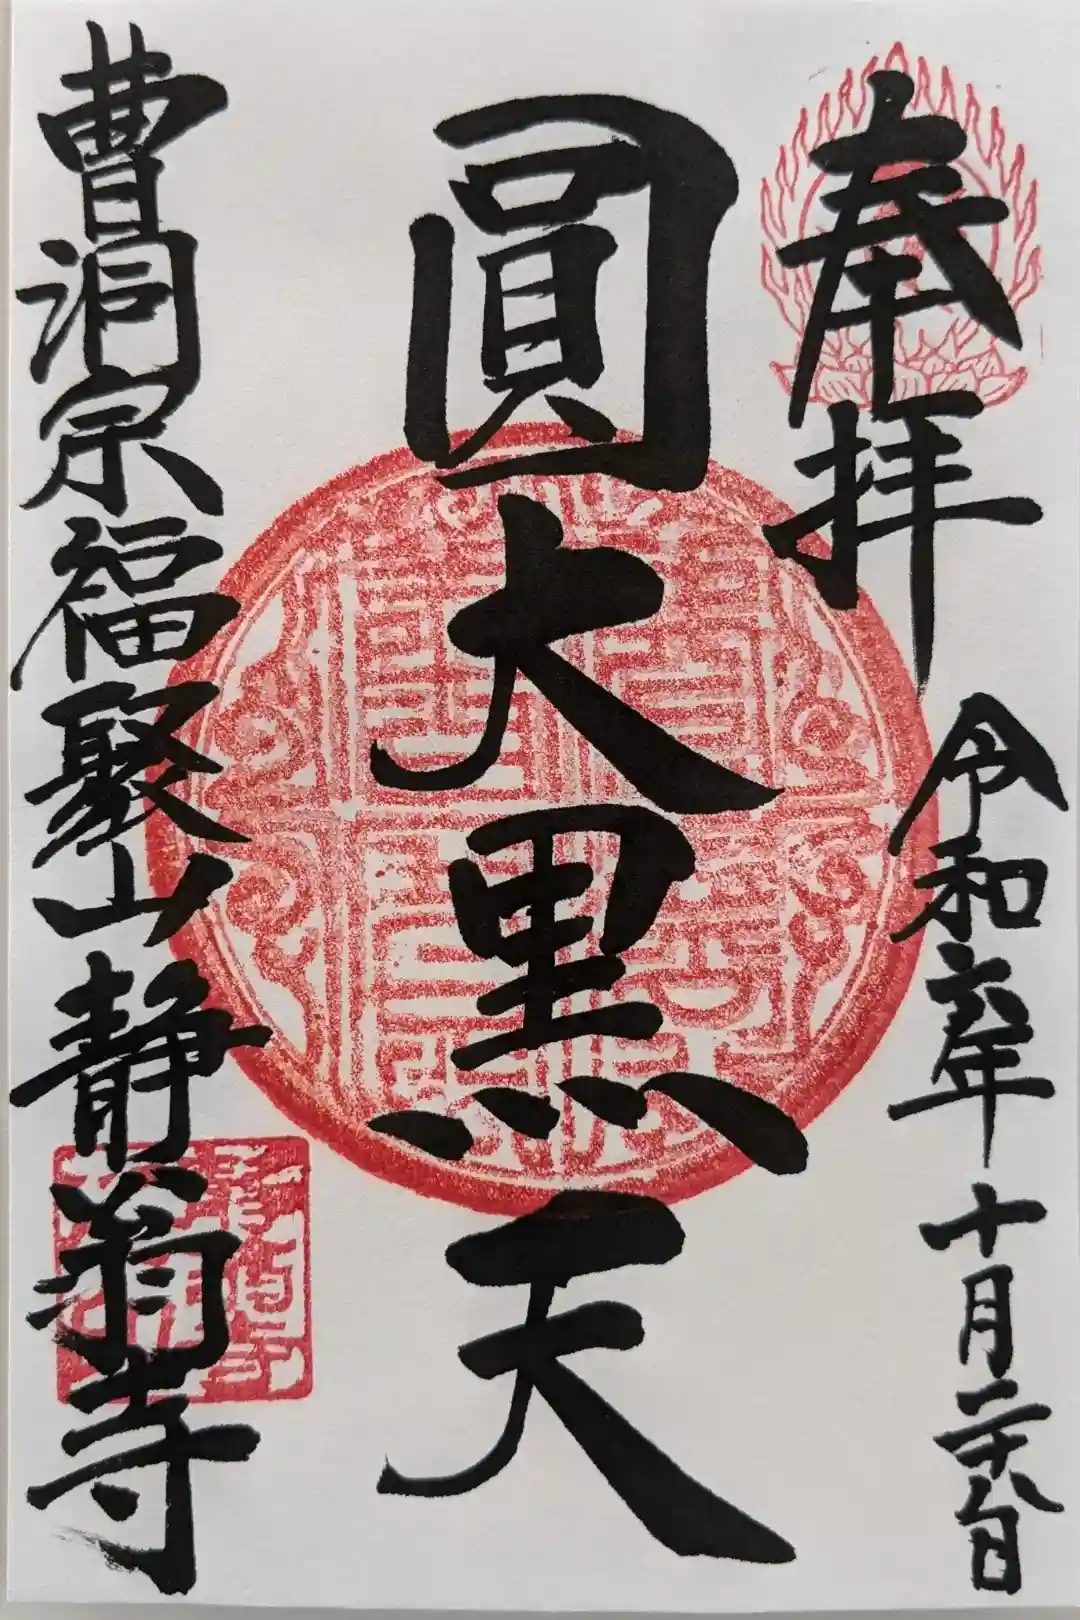 奉拝
令和六年十月二十八日
圓大黒天
曹洞宗福聚山静翁寺